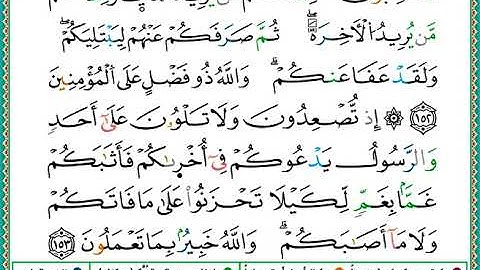 مَّن يُرِيدُ ٱلْـَٔاخِرَةَ ۚ ثُمَّ صَرَفَكُمْ عَنْهُمْ لِيَبْتَلِيَكُمْ ۖ
وَلَقَدْ عَفَا عَنكُمْ ۗ وَٱللَّهُ ذُو فَضْلٍ عَلَى ٱلْمُؤْمِنِينَ
﴿١٥٢﴾ ۞ إِذْ تُصْعِدُونَ وَلَا تَلْوُۥنَ عَلَىٰٓ أَحَدٍ
وَٱلرَّسُولُ يَدْعُوكُمْ فِىٓ أُخْرَىٰكُمْ فَأَثَـٰبَكُمْ
غَمًّۢا بِغَمٍّ لِّكَيْلَا تَحْزَنُوا۟ عَلَىٰ مَا فَاتَكُمْ
وَلَا مَآ أَصَـٰبَكُمْ ۗ وَٱللَّهُ خَبِيرٌۢ بِمَا تَعْمَلُونَ ﴿١٥٣﴾